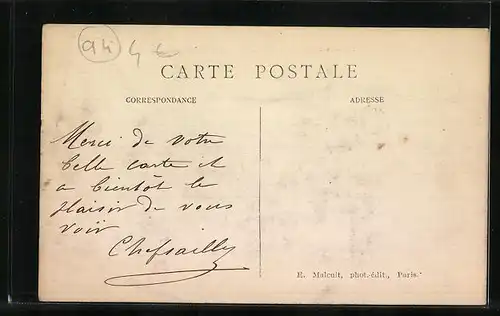 94 4 €
CARTE POSTALE
CORRESPONDANCE
ADRESSE
Merci de votre
belle carte et
a bientôt le
plaisir de vous
voir
E. Malcuit, phot.-édit., Paris.